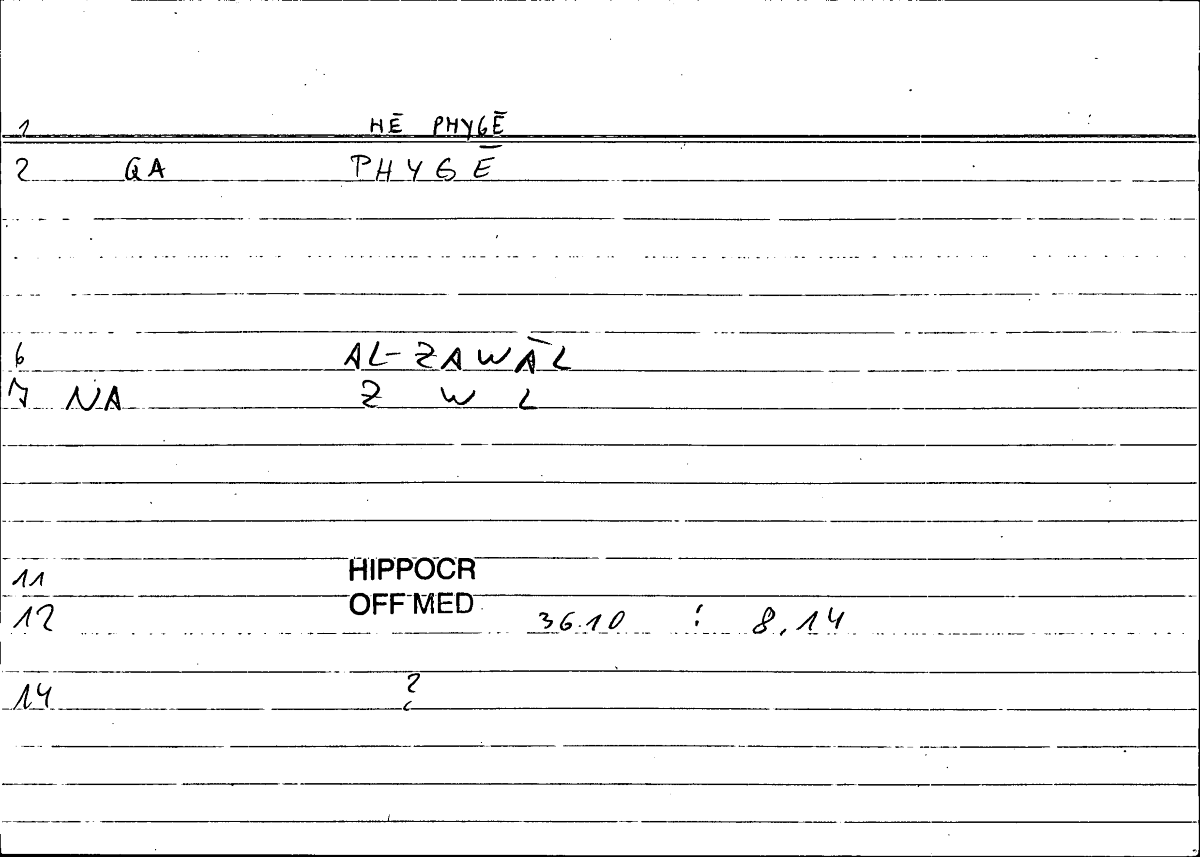 1 HĒ PHYGĒ
2 QA PHYGĒ
6 AL-ZAWĀL
7 NA Z W L
11 HIPPOCR
12 OFF MED 36.10 : 8.14
14 ?